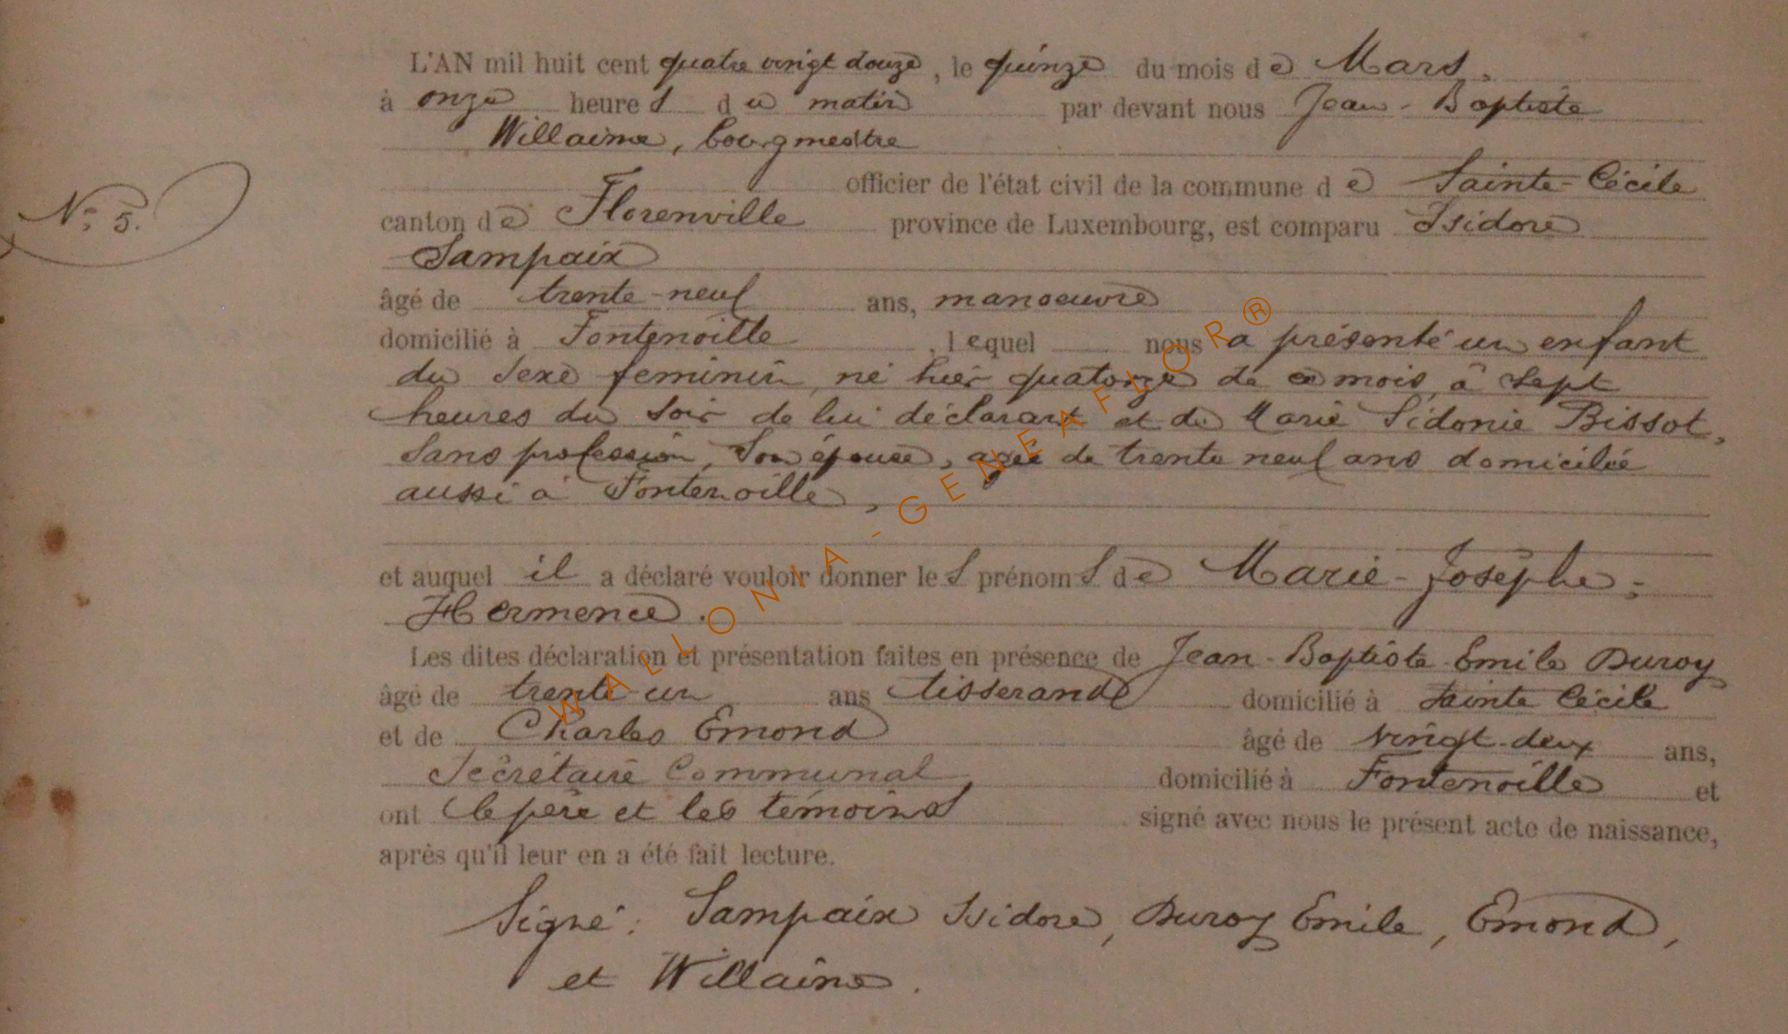 L'AN mil huit cent quatre vingt douze, le quinze du mois de Mars.
à onze heures du matin par devant nous Jean-Baptiste
Willaime, bourgmestre
officier de l'état civil de la commune de Sainte-Cécile
N° 5.
canton de Florenville province de Luxembourg, est comparu Isidore
Sampaix
âgé de trente-neuf ans, manoeuvre
domicilié à Fontenoille, lequel nous a présenté un enfant
du sexe feminin, né hier quatorze de ce mois, à sept
heures du soir de lui déclarant et de Marie Sidonie Bissot,
sans profession, son épouse, agée de trente neuf ans domiciliée
aussi à Fontenoille,
et auquel il a déclaré vouloir donner les prénoms de Marie-Josèphe-
Hermence.
Les dites déclaration et présentation faites en présence de Jean-Baptiste Emile Duroy
âgé de trente-un ans tisserand domicilié à Sainte Cécile
et de Charles Emond âgé de vingt-deux ans,
Secrétaire Communal domicilié à Fontenoille et
ont le père et les témoins signé avec nous le présent acte de naissance,
après qu'il leur en a été fait lecture.
Signé: Sampaix Isidore, Duroy Emile, Emond,
et Willaime.
WALLONIA-GENEAFLOR®